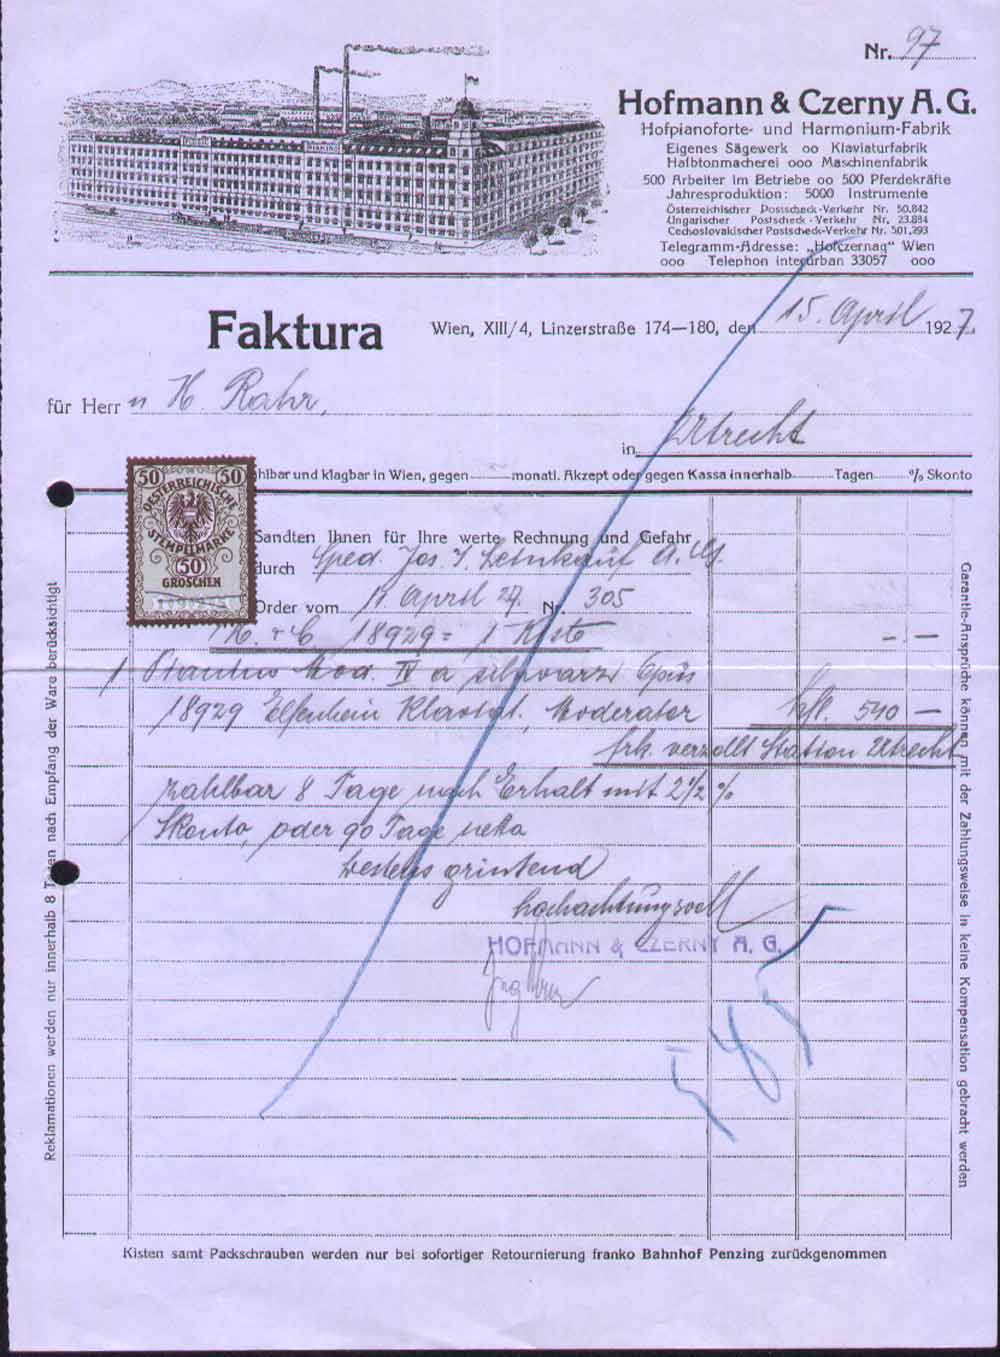 Nr. 97
Hofmann & Czerny A.G.
Hofpianoforte- und Harmonium-Fabrik
Eigenes Sägewerk oo Klaviaturfabrik
Halbtonmacherei ooo Maschinenfabrik
500 Arbeiter im Betriebe oo 500 Pferdekräfte
Jahresproduktion: 5000 Instrumente
Österreichischer Postscheck-Verkehr Nr. 50.842
Ungarischer Postscheck-Verkehr Nr. 23.884
Cechoslovakischer Postscheck-Verkehr Nr. 501.293
Telegramm-Adresse: „Hofczernag" Wien
ooo Telephon interurban 33057 ooo
Faktura
Wien, XIII/4, Linzerstraße 174—180, den 15. April 1927.
für Herrn H. Rahr,
in Utrecht
hlbar und klagbar in Wien, gegen monatl. Akzept oder gegen Kassa innerhalb Tagen % Skonto
50 50
OESTERREICHISCHE
STEMPELMARKE
50
GROSCHEN
Sandten Ihnen für Ihre werte Rechnung und Gefahr
durch Sped. Jos. J. Leinkauf A.G.
Order vom 11. April 27. Nr. 305
H. & C 18929 = 1 Kiste
1 Pianino Mod. IV a schwarz Opus
18929 Elfenbein Klaviat. Moderator hfl. 540 —
frk. verzollt Station Utrecht
zahlbar 8 Tage nach Erhalt mit 2 1/2 %
Skonto, oder 90 Tage netto
bestens grüßend
hochachtungsvoll
HOFMANN & CZERNY A. G.
545
Reklamationen werden nur innerhalb 8 Tagen nach Empfang der Ware berücksichtigt
Garantie-Ansprüche können mit der Zahlungsweise in keine Kompensation gebracht werden
Kisten samt Packschrauben werden nur bei sofortiger Retournierung franko Bahnhof Penzing zurückgenommen